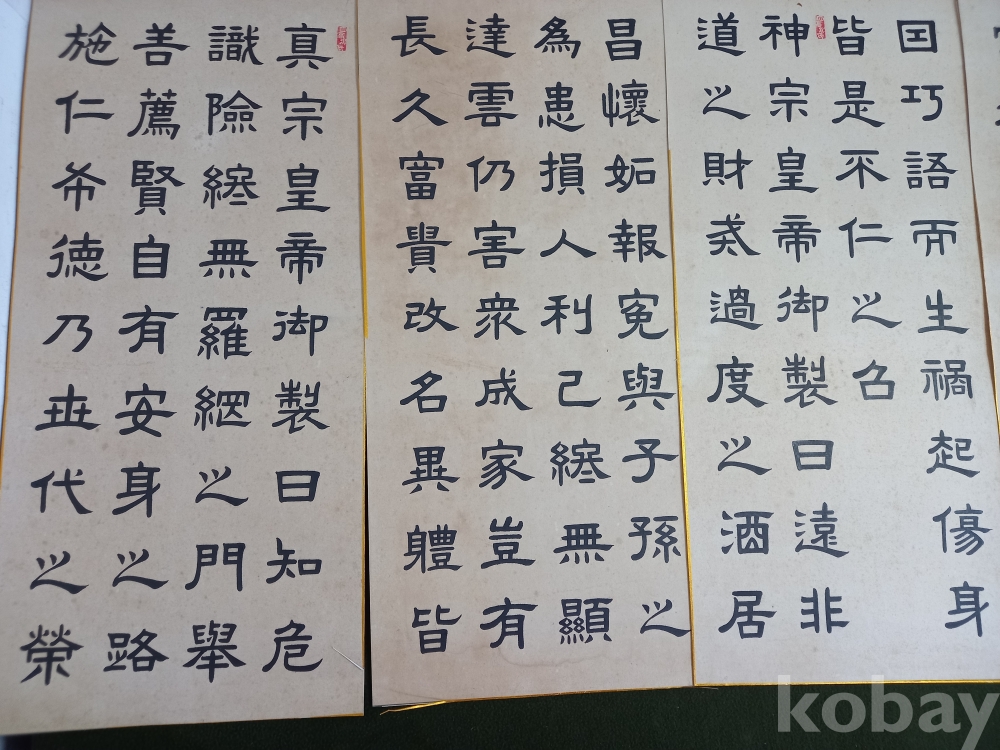 真宗皇帝御製曰知危
識險終無羅網之門舉
善薦賢自有安身之路
施仁布德乃世代之榮
昌懷妬報冤與子孫之
為患損人利己終無顯
達雲仍害衆成家豈有
長久富貴改名異體皆
因巧語而生禍起傷身
皆是不仁之召
神宗皇帝御製曰遠非
道之財戒過度之酒居
kobay